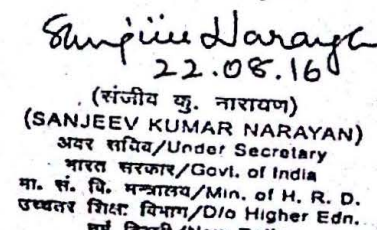 Sanjiiv Narayan
22.08.16
(संजीव कु. नारायण)
(SANJEEV KUMAR NARAYAN)
अवर सचिव/Under Secretary
भारत सरकार/Govt. of India
मा. सं. वि. मन्त्रालय/Min. of H. R. D.
उच्चतर शिक्षा विभाग/D/o Higher Edn.